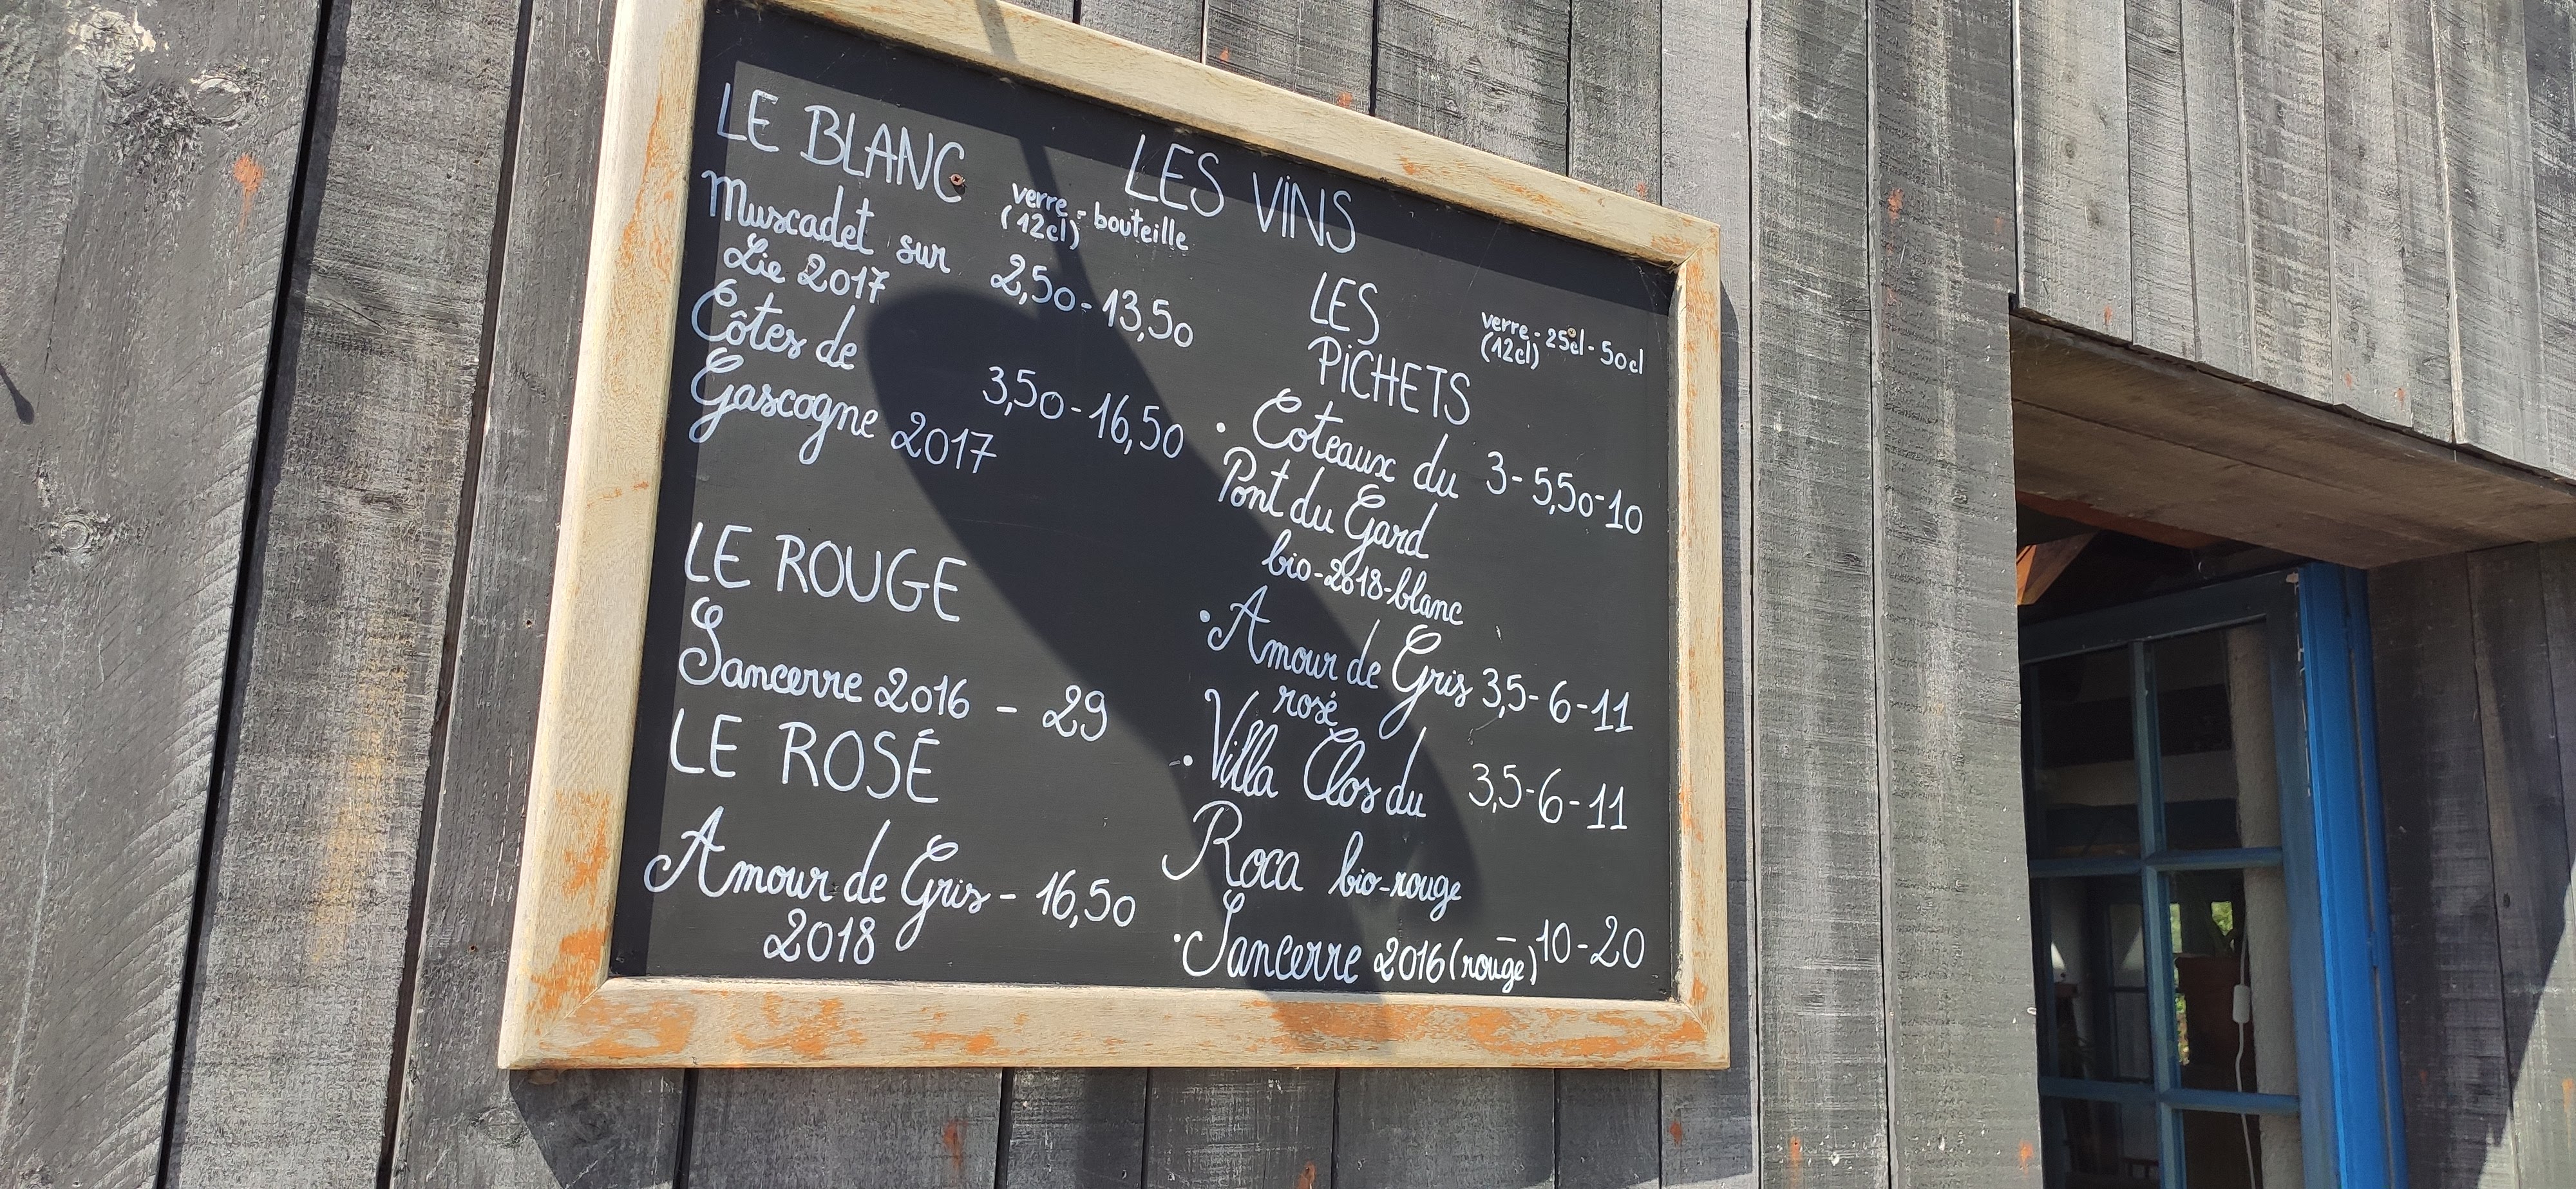 LES VINS
LE BLANC
verre - bouteille
(12cl)
Muscadet sur
Lie 2017
2,50 - 13,50
Côtes de
Gascogne 2017
3,50 - 16,50
LE ROUGE
Sancerre 2016 - 29
LE ROSÉ
Amour de Gris - 16,50
2018
LES
PICHETS
verre - 25cl - 50cl
(12cl)
• Coteaux du 3 - 5,50 - 10
Pont du Gard
bio - 2018 - blanc
• Amour de Gris 3,5 - 6 - 11
rosé
• Villa Clos du 3,5 - 6 - 11
Roca bio - rouge
• Sancerre 2016 (rouge) - 10 - 20